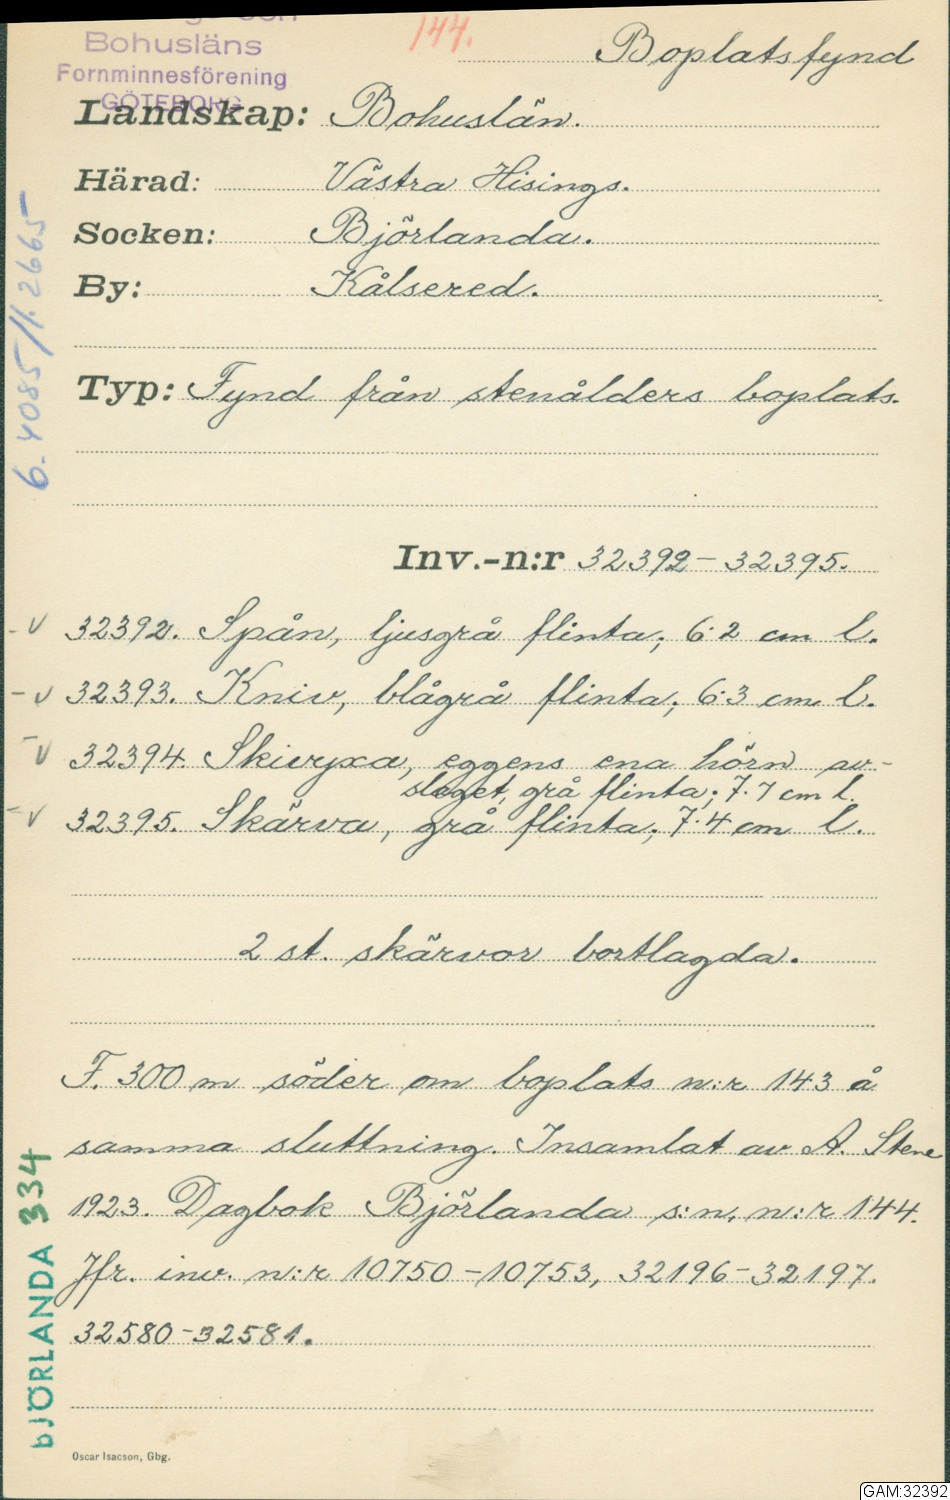 144.
Boplatsfynd
Bohusläns
Fornminnesförening
GÖTEBORG
Landskap: Bohuslän.
Härad: Västra Hisings.
Socken: Björlanda.
By: Kålsered.
6. 4085/1.2665
Typ: Fynd från stenålders boplats.
Inv.-n:r 32392-32395.
- v 32392. Spån, ljusgrå flinta; 6.2 cm l.
- v 32393. Kniv, blågrå flinta; 6.3 cm l.
- v 32394. Skivyxa, eggens ena hörn av-
slaget, grå flinta; 7.7 cm l.
- v 32395. Skärva, grå flinta; 7.4 cm l.
2 st. skärvor bortlagda.
F. 300 m söder om boplats n:r 143 å
samma sluttning. Insamlat av A. Stene
1923. Dagbok Björlanda s:n, n:r 144.
Jfr. inv. n:r 10750-10753, 32196-32197.
32580-32581.
BJÖRLANDA 334
Oscar Isacson, Gbg.
GAM:32392